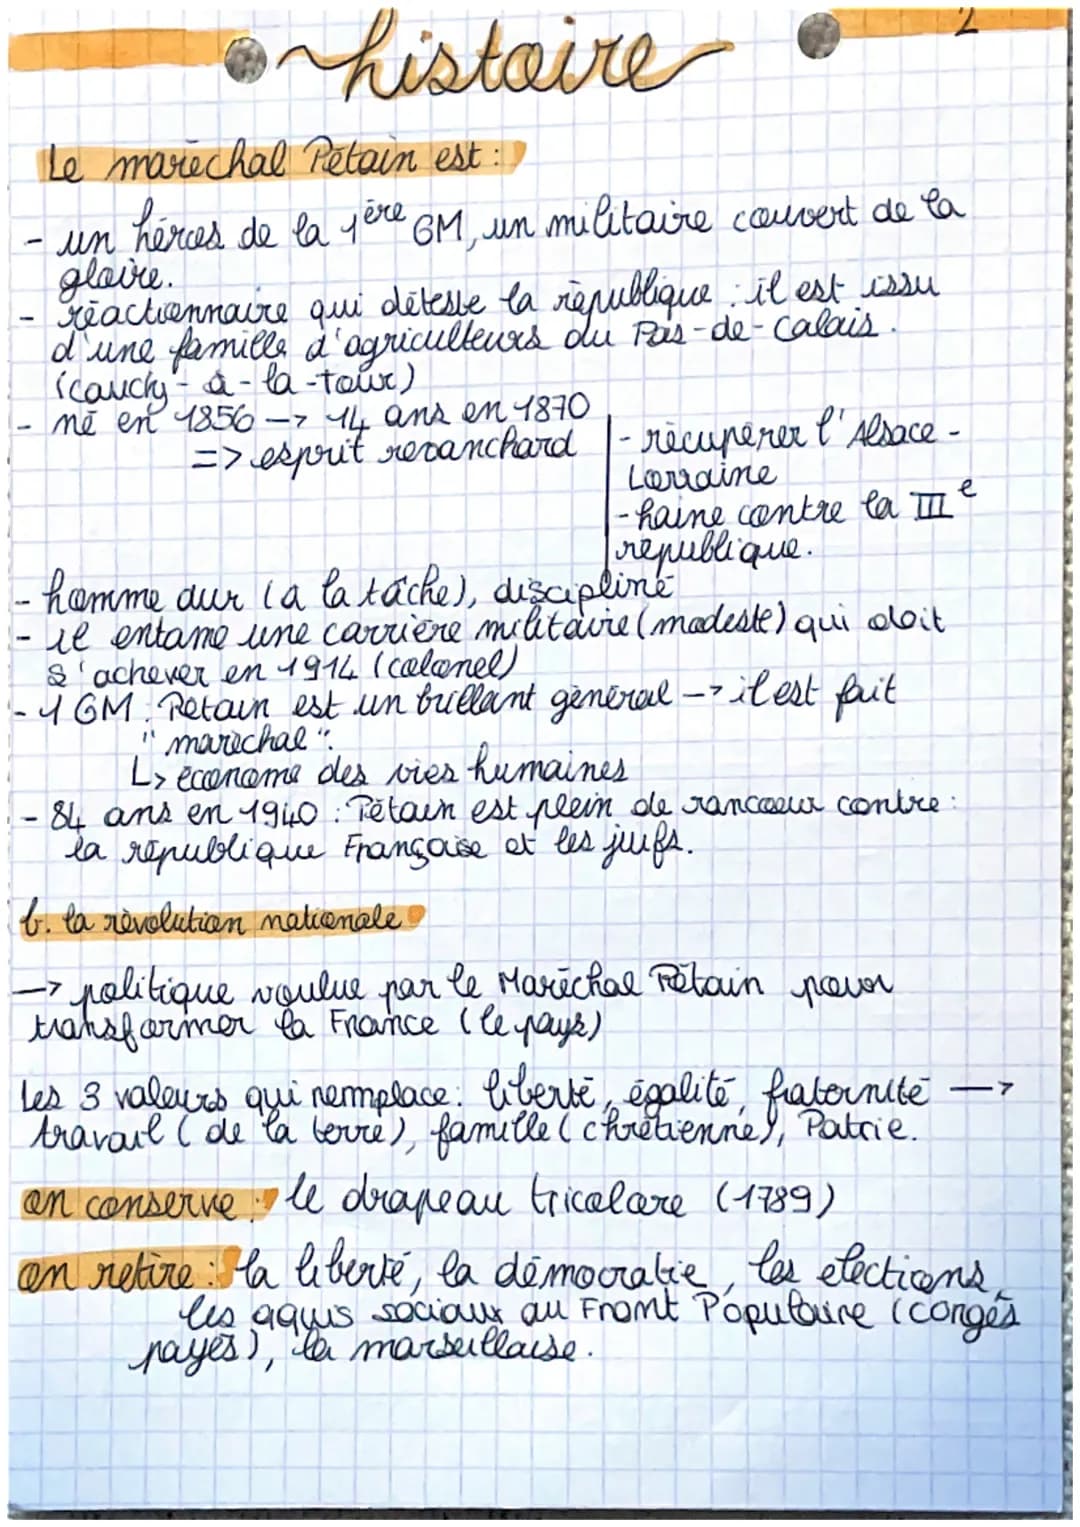 2
histoire
Le maréchal Pétain est :
- un héros de la 1ère GM, un militaire couvert de la
gloire.
- réactionnaire qui déteste la république : il est issu
d'une famille d'agriculteurs du Pas-de-Calais.
(cauchy-à-la-Tour)
- né en 1856 -> 14 ans en 1870
=> esprit revanchard
- récupérer l'Alsace-
Lorraine
- haine contre la IIIe
république.
- homme dur (a la tâche), discipliné
- il entame une carrière militaire (modeste) qui doit
s'achever en 1914 (colonel)
- 1 GM : Pétain est un brillant général -> il est fait
"maréchal".
L> économe des vies humaines
- 84 ans en 1940 : Pétain est plein de rancoeur contre :
la république Française et les juifs.
b. la révolution nationale
-> politique voulue par le Maréchal Pétain pour
transformer la France (le pays)
Les 3 valeurs qui remplace : liberté, égalité, fraternité ->
travail (de la terre), famille (chrétienne), Patrie.
on conserve : le drapeau tricolore (1789)
on retire : la liberté, la démocratie, les élections,
les aquis sociaux au Front Populaire (congés
payés), la marseillaise.